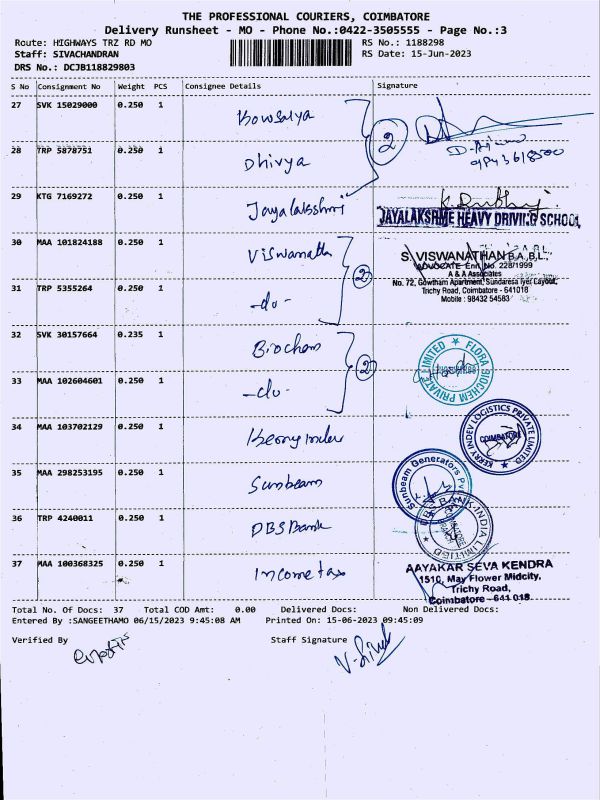 THE PROFESSIONAL COURIERS, COIMBATORE
Delivery Runsheet - MO - Phone No.:0422-3505555 - Page No.:3
Route: HIGHWAYS TRZ RD MO RS No.: 1188298
Staff: SIVACHANDRAN RS Date: 15-Jun-2023
DRS No.: DCJB118829803
S No Consignment No Weight PCS Consignee Details Signature
27 SVK 15029000 0.250 1 Kowsalya
2
28 TRP 5878751 0.250 1 Dhivya
29 KTG 7169272 0.250 1 Jayalakshmi
JAYALAKSHME HEAVY DRIVING SCHOOL
30 MAA 101824188 0.250 1 Viswanath
S. VISWANATHAN B.A.,B.L.,
ADVOCATE Enr. No. 228/1999
A & A Associates
No. 72, Gowtham Apartment, Sundaresa Iyer Layout,
Trichy Road, Coimbatore - 641018
Mobile : 98432 54583
2
31 TRP 5355264 0.250 1 -do-
32 SVK 30157664 0.235 1 Biochem
FLORA BIOCHEM PRIVATE LIMITED
2
33 MAA 102604601 0.250 1 -do-
34 MAA 103702129 0.250 1 Kerry Indev
KERRY INDEV LOGISTICS PRIVATE LIMITED
COIMBATORE
35 MAA 298253195 0.250 1 Sunbeam
Sunbeam Generators Pvt
36 TRP 4240011 0.250 1 DBS Bank
DBS BANK INDIA LIMITED
37 MAA 100368325 0.250 1 Income tax
AAYAKAR SEVA KENDRA
1510, May Flower Midcity,
Trichy Road,
Coimbatore - 641 018.
Total No. Of Docs: 37 Total COD Amt: 0.00 Delivered Docs: Non Delivered Docs:
Entered By :SANGEETHAMO 06/15/2023 9:45:08 AM Printed On: 15-06-2023 09:45:09
Verified By Staff Signature